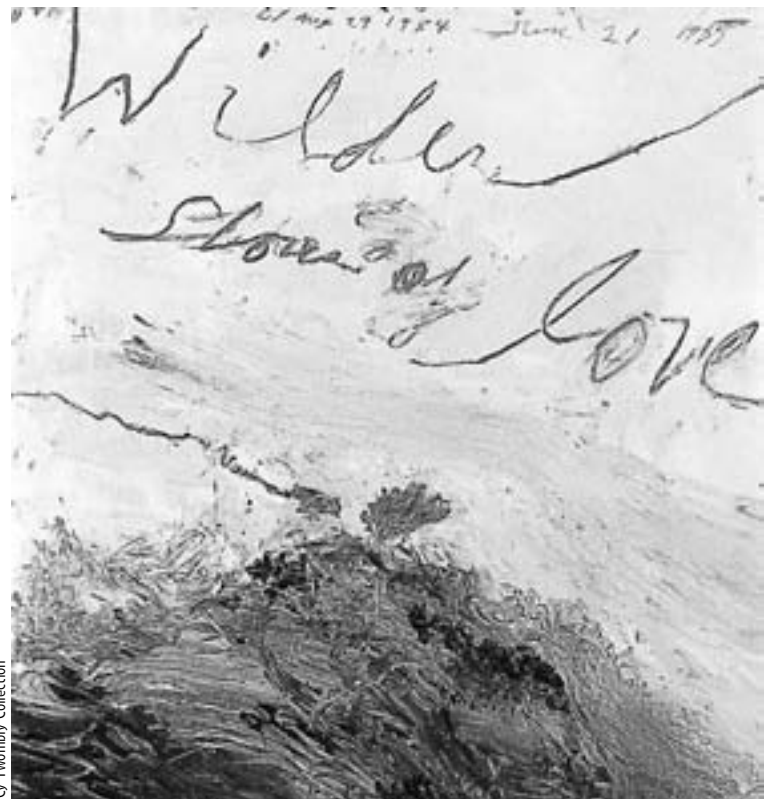 29 1984 June 21 1985
Wilder
Shores of
love
Cy Twombly Collection